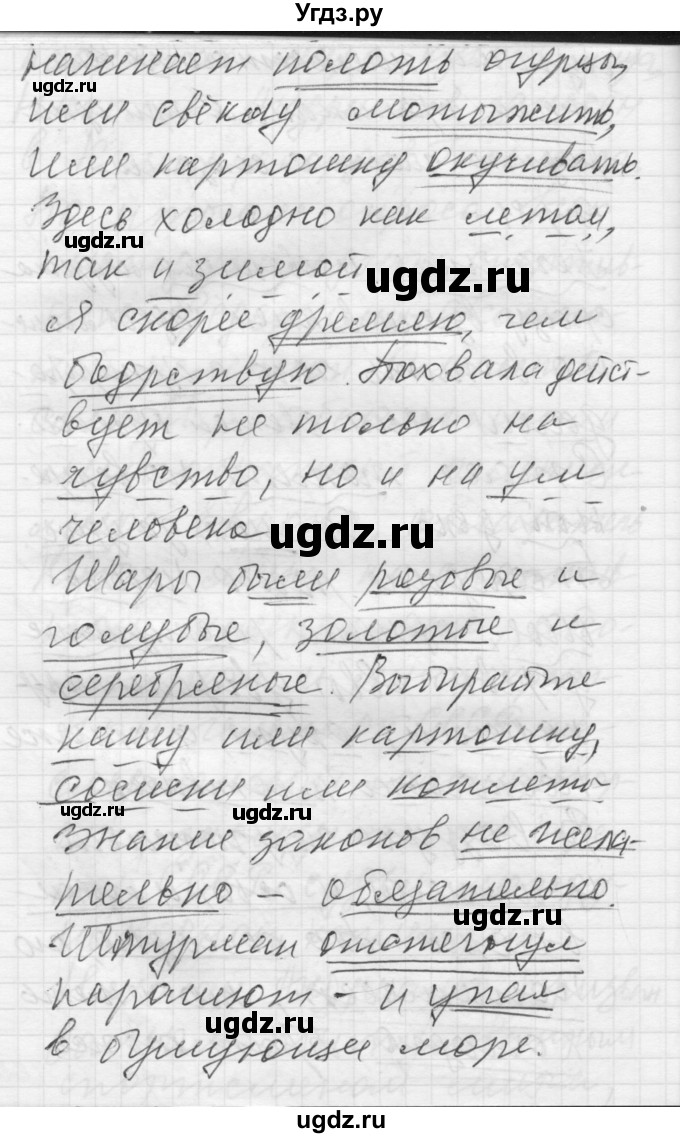 Угдз.ру
начинает полоть огурцы,
или свёклу мотыжить,
или картошку окучивать.
Здесь холодно как летом,
ugdz.ru
так и зимой.
ugdz.ru
Я скорее дремлю, чем
ugdz.ru
бодрствую. Похвала дейст-
вует не только на
чувство, но и на ум
ugdz.ru
человека.
Шары были розовые и
голубые, золотые и
серебряные. Выбирайте
кашу или картошку,
сосиски или котлеты
ugdz.ru
ugdz.ru
Знание законов не жела-
тельно – обязательно.
ugdz.ru
Штурман отстегнул
парашют – и упал
ugdz.ru
в бушующее море.
ugdz.ru